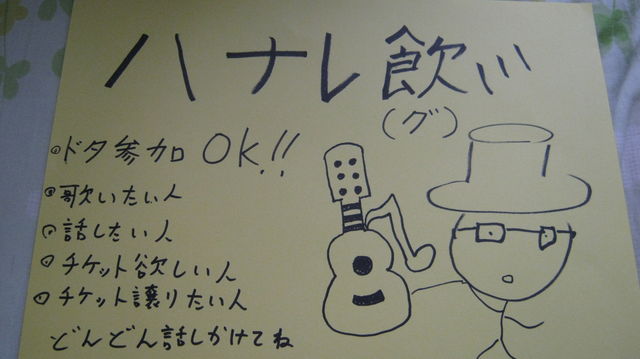 ハナレ飲ハハ
(グ)
◎ドタ参加OK!!
◎歌いたい人
○話したい人
○チケット欲しい人
○チケット譲りたい人
どんどん話しかけてね